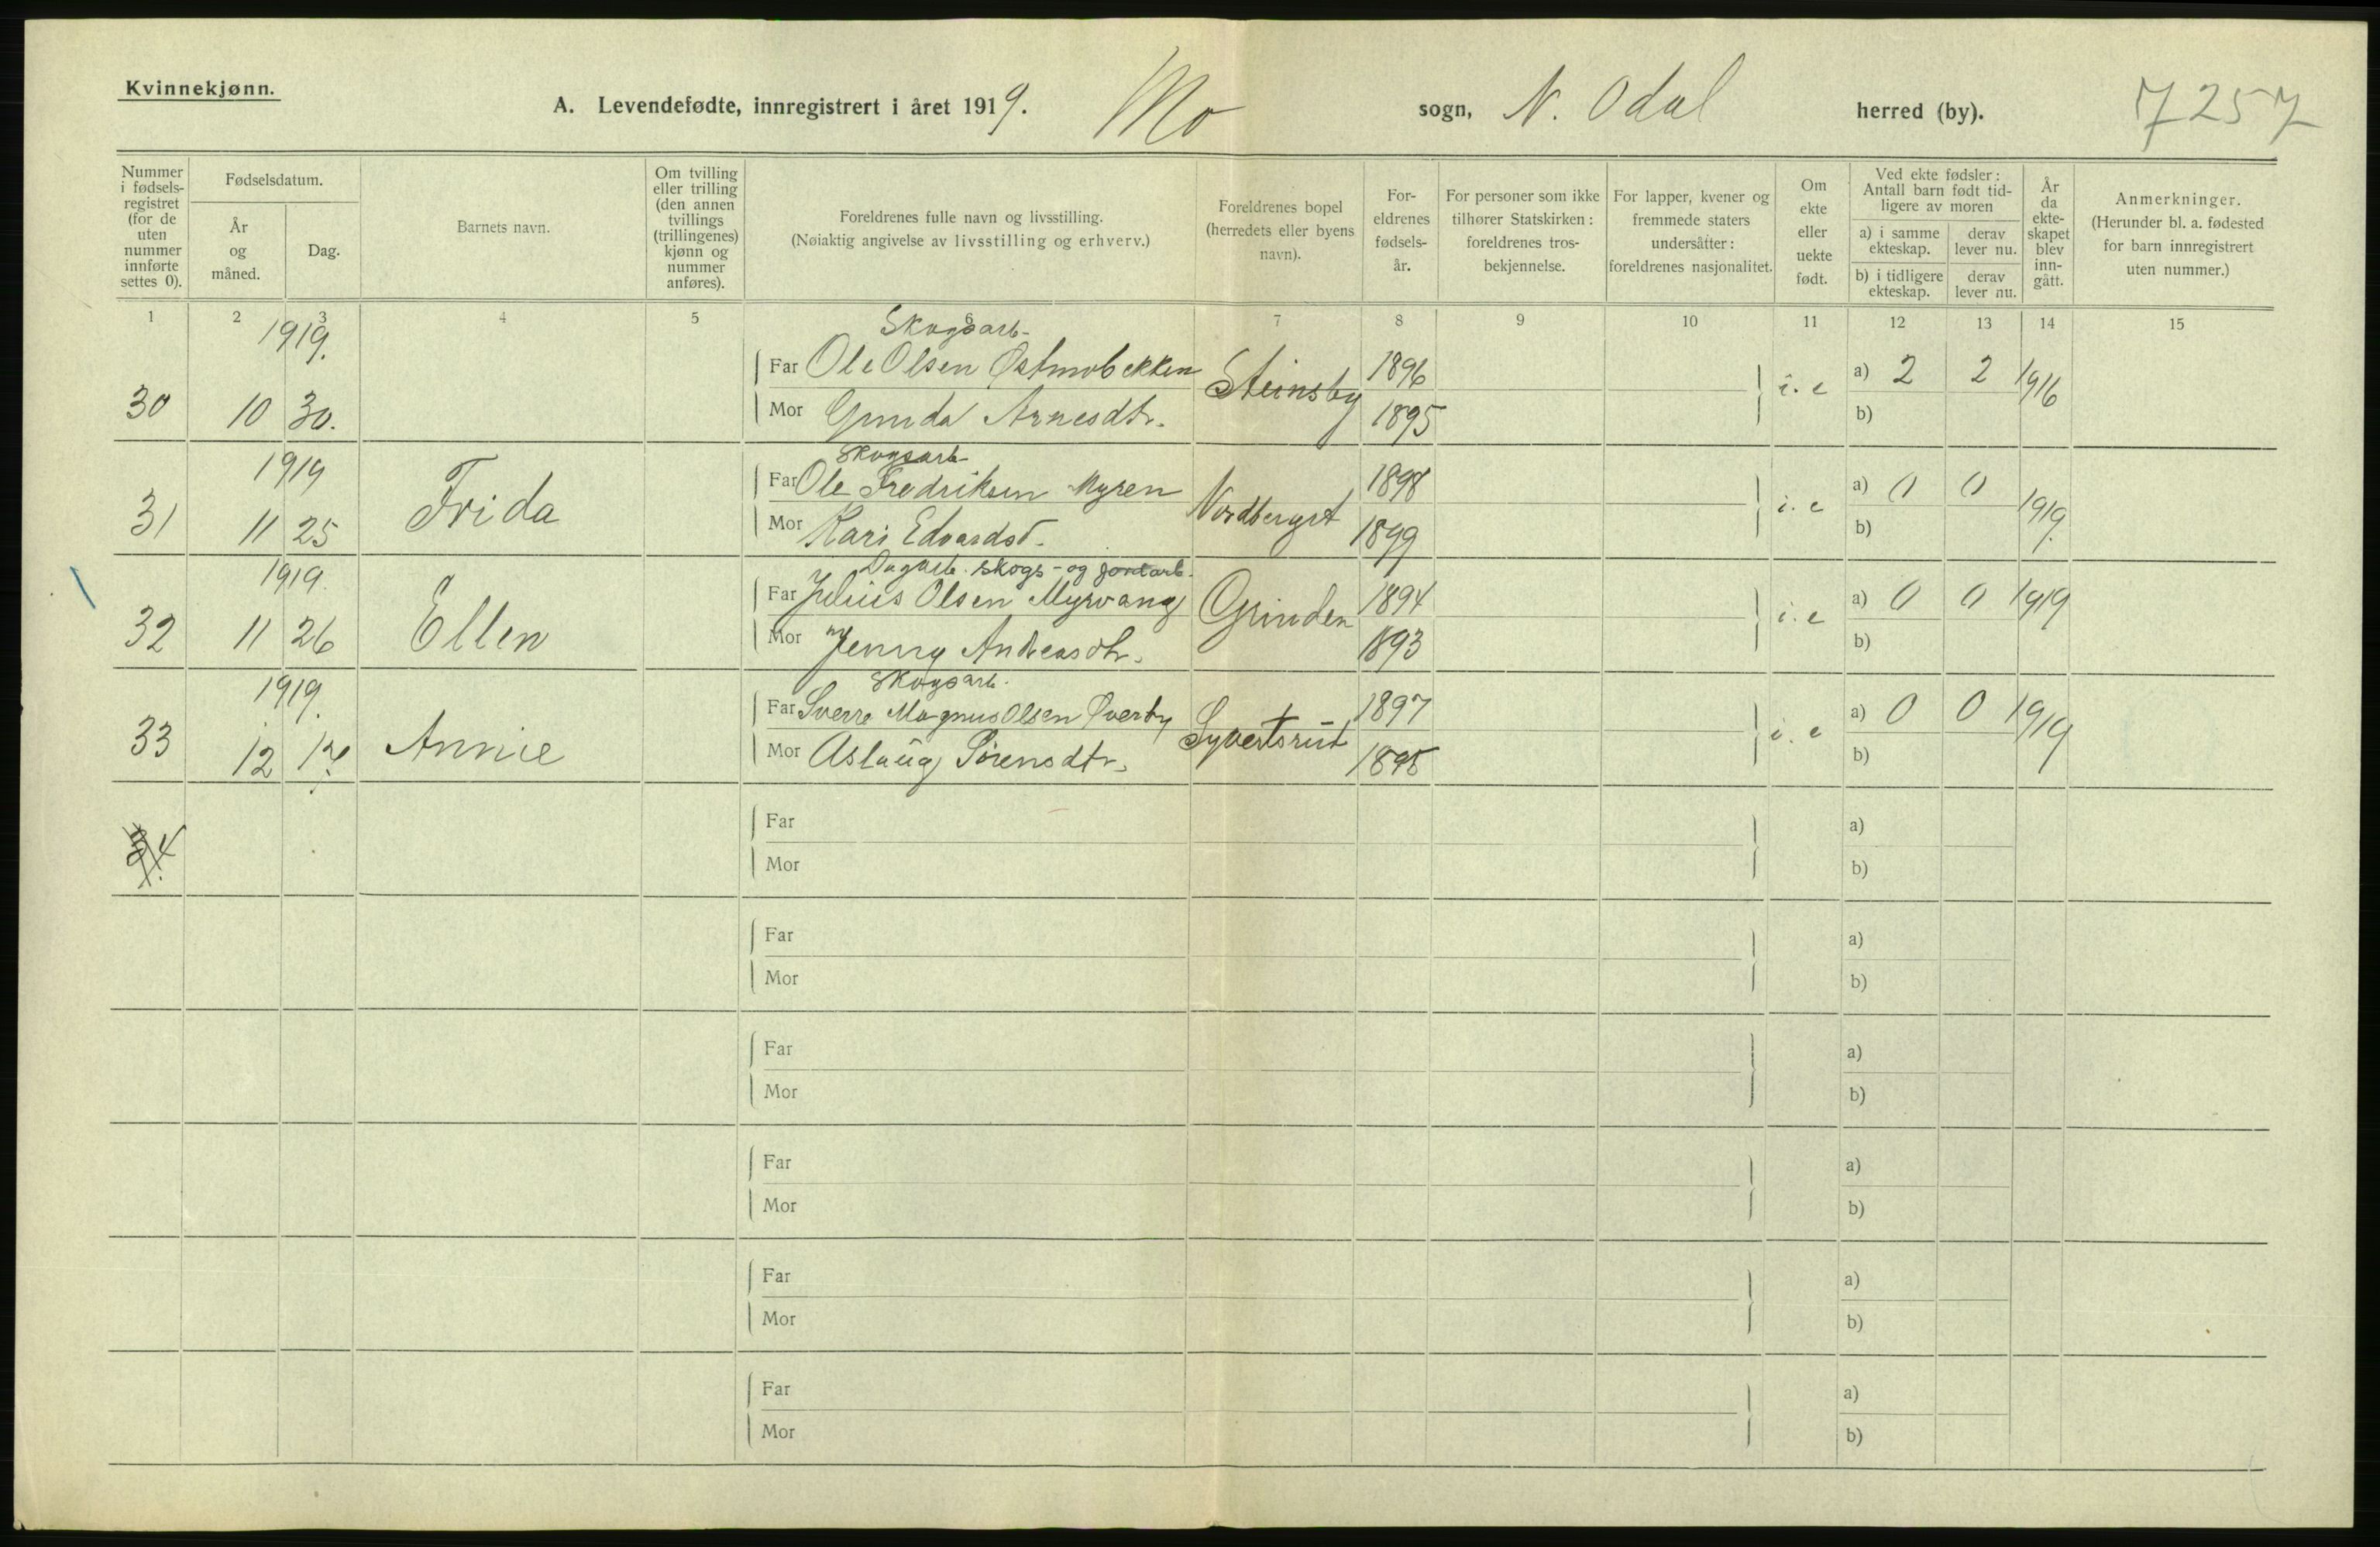 Kvinnekjønn.
A. Levendefødte, innregistrert i året 1919. Mo sogn, N. Odal herred (by). 7257
Nummer i fødsels-registret (for de uten nummer innførte settes 0).
Fødselsdatum.
År og måned.
Dag.
Barnets navn.
Om tvilling eller trilling (den annen tvillings (trillingenes) kjønn og nummer anføres).
Foreldrenes fulle navn og livsstilling.
(Nøiaktig angivelse av livsstilling og erhverv.)
Foreldrenes bopel (herredets eller byens navn).
For-eldrenes fødsels-år.
For personer som ikke tilhører Statskirken: foreldrenes tros-bekjennelse.
For lapper, kvener og fremmede staters undersåtter: foreldrenes nasjonalitet.
Om ekte eller uekte født.
Ved ekte fødsler: Antall barn født tid-ligere av moren
a) i samme ekteskap.
derav lever nu.
b) i tidligere ekteskap.
derav lever nu.
År da ekte-skapet blev inn-gått.
Anmerkninger.
(Herunder bl. a. fødested for barn innregistrert uten nummer.)
1 2 3 4 5 6 7 8 9 10 11 12 13 14 15
1919. Skogsarb-
Far Ole Olsen Østmobekken Steinsby 1896 i. e a) 2 2 1916
30 10 30. Mor Gunda Arnesdtr. 1895 b)
1919 Skogsarb-
Far Ole Fredriksen Myren 1898 i. e a) 0 0 1919.
31 11 25 Frida Mor Kari Edvardsd. 1899 b)
1919. Dagarb. skogs- og jordarb.
Far Julius Olsen Myrvang Grinden 1894 i. e a) 0 0 1919
32 11 26 Ellen Mor Jenny Andreasdtr. 1893 b)
1919. Skogsarb.
Far Sverre Magnus Olsen Øverby Syvertsrud 1897 i. e a) 0 0 1919
33 12 Annie Mor Aslaug Sørensdtr. 1895 b)
34.
Far a)
Mor b)
Far a)
Mor b)
Far a)
Mor b)
Far a)
Mor b)
Far a)
Mor b)
Far a)
Mor b)